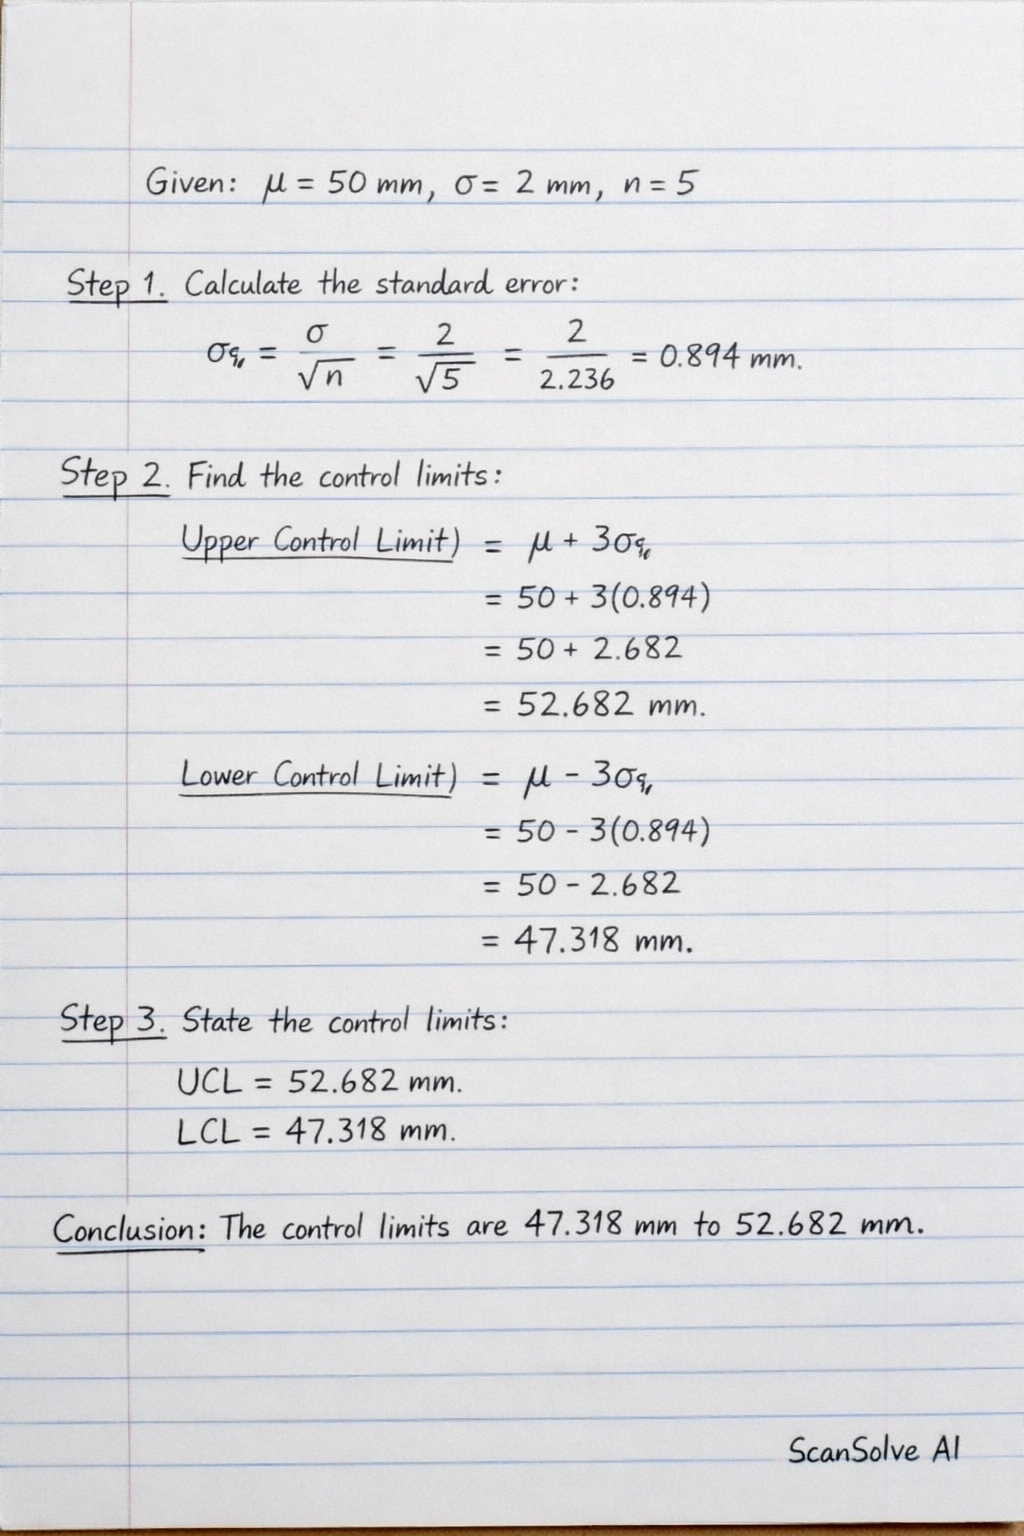 Given: μ = 50 mm, σ = 2 mm, n = 5
Step 1. Calculate the standard error:
σq, = σ/√n = 2/√5 = 2/2.236 = 0.894 mm.
Step 2. Find the control limits:
Upper Control Limit) = μ + 3σq,
= 50 + 3(0.894)
= 50 + 2.682
= 52.682 mm.
Lower Control Limit) = μ - 3σq,
= 50 - 3(0.894)
= 50 - 2.682
= 47.318 mm.
Step 3. State the control limits:
UCL = 52.682 mm.
LCL = 47.318 mm.
Conclusion: The control limits are 47.318 mm to 52.682 mm.
ScanSolve AI